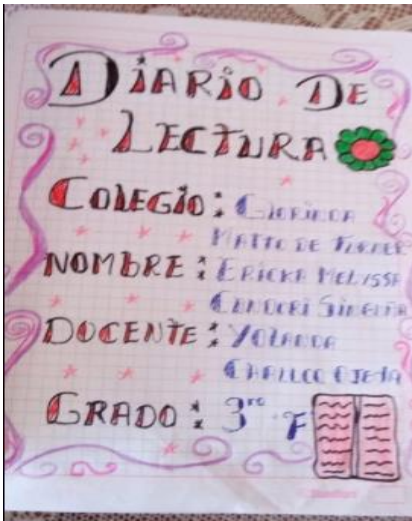 DIARIO DE
LECTURA
COLEGIO: CLORINDA
MATTO DE TURNER
NOMBRE: ERICKA MELYSSA
CONDORI
DOCENTE: YOLANDA
CHALLCO
GRADO: 3ro F